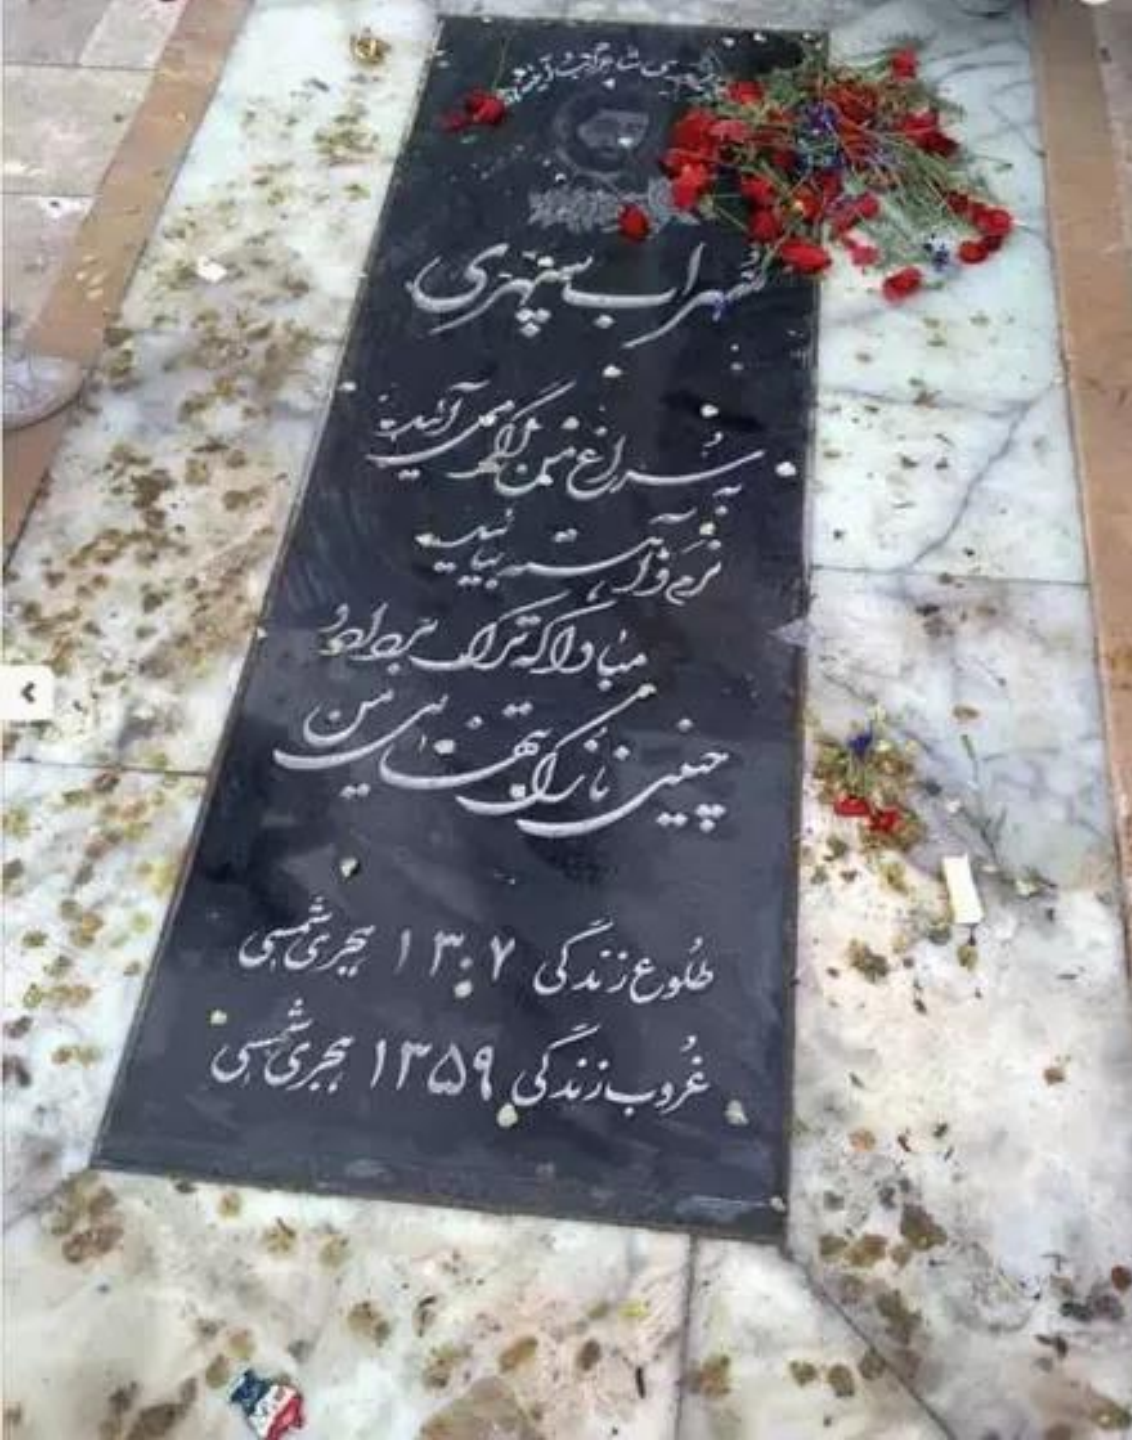 سُهراب سپهری
به سُراغ من اگر می‌آئید
نَرم و آهسته بیائید
مبادا که تَرَک بردارد
چینی نازک تنهائی من
طلوع زندگی ۱۳۰۷ هجری شمسی
غُروب زندگی ۱۳۵۹ هجری شمسی